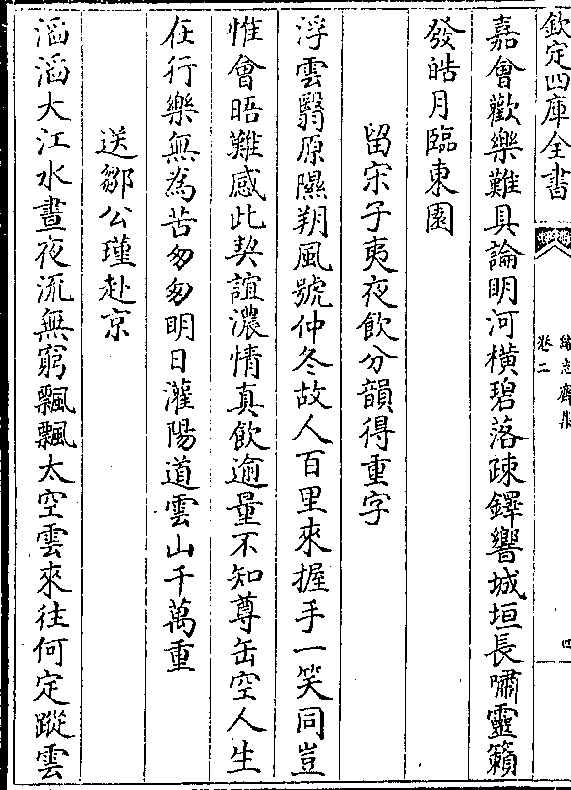 欽定四庫全書
卷二
四
嘉會歡樂難具論明河横碧落疎鐸響城垣長嘯靈籟
發皓月臨東園
留宋子夷夜飲分韻得重字
浮雲翳原隰朔風號仲冬故人百里來握手一笑同豈
惟會晤難感此契誼濃情真飲逾量不知尊缶空人生
在行樂無為苦匆匆明日灌陽道雲山千萬重
送鄒公瑾赴京
滔滔大江水晝夜流無窮飄飄太空雲來往何定蹤雲